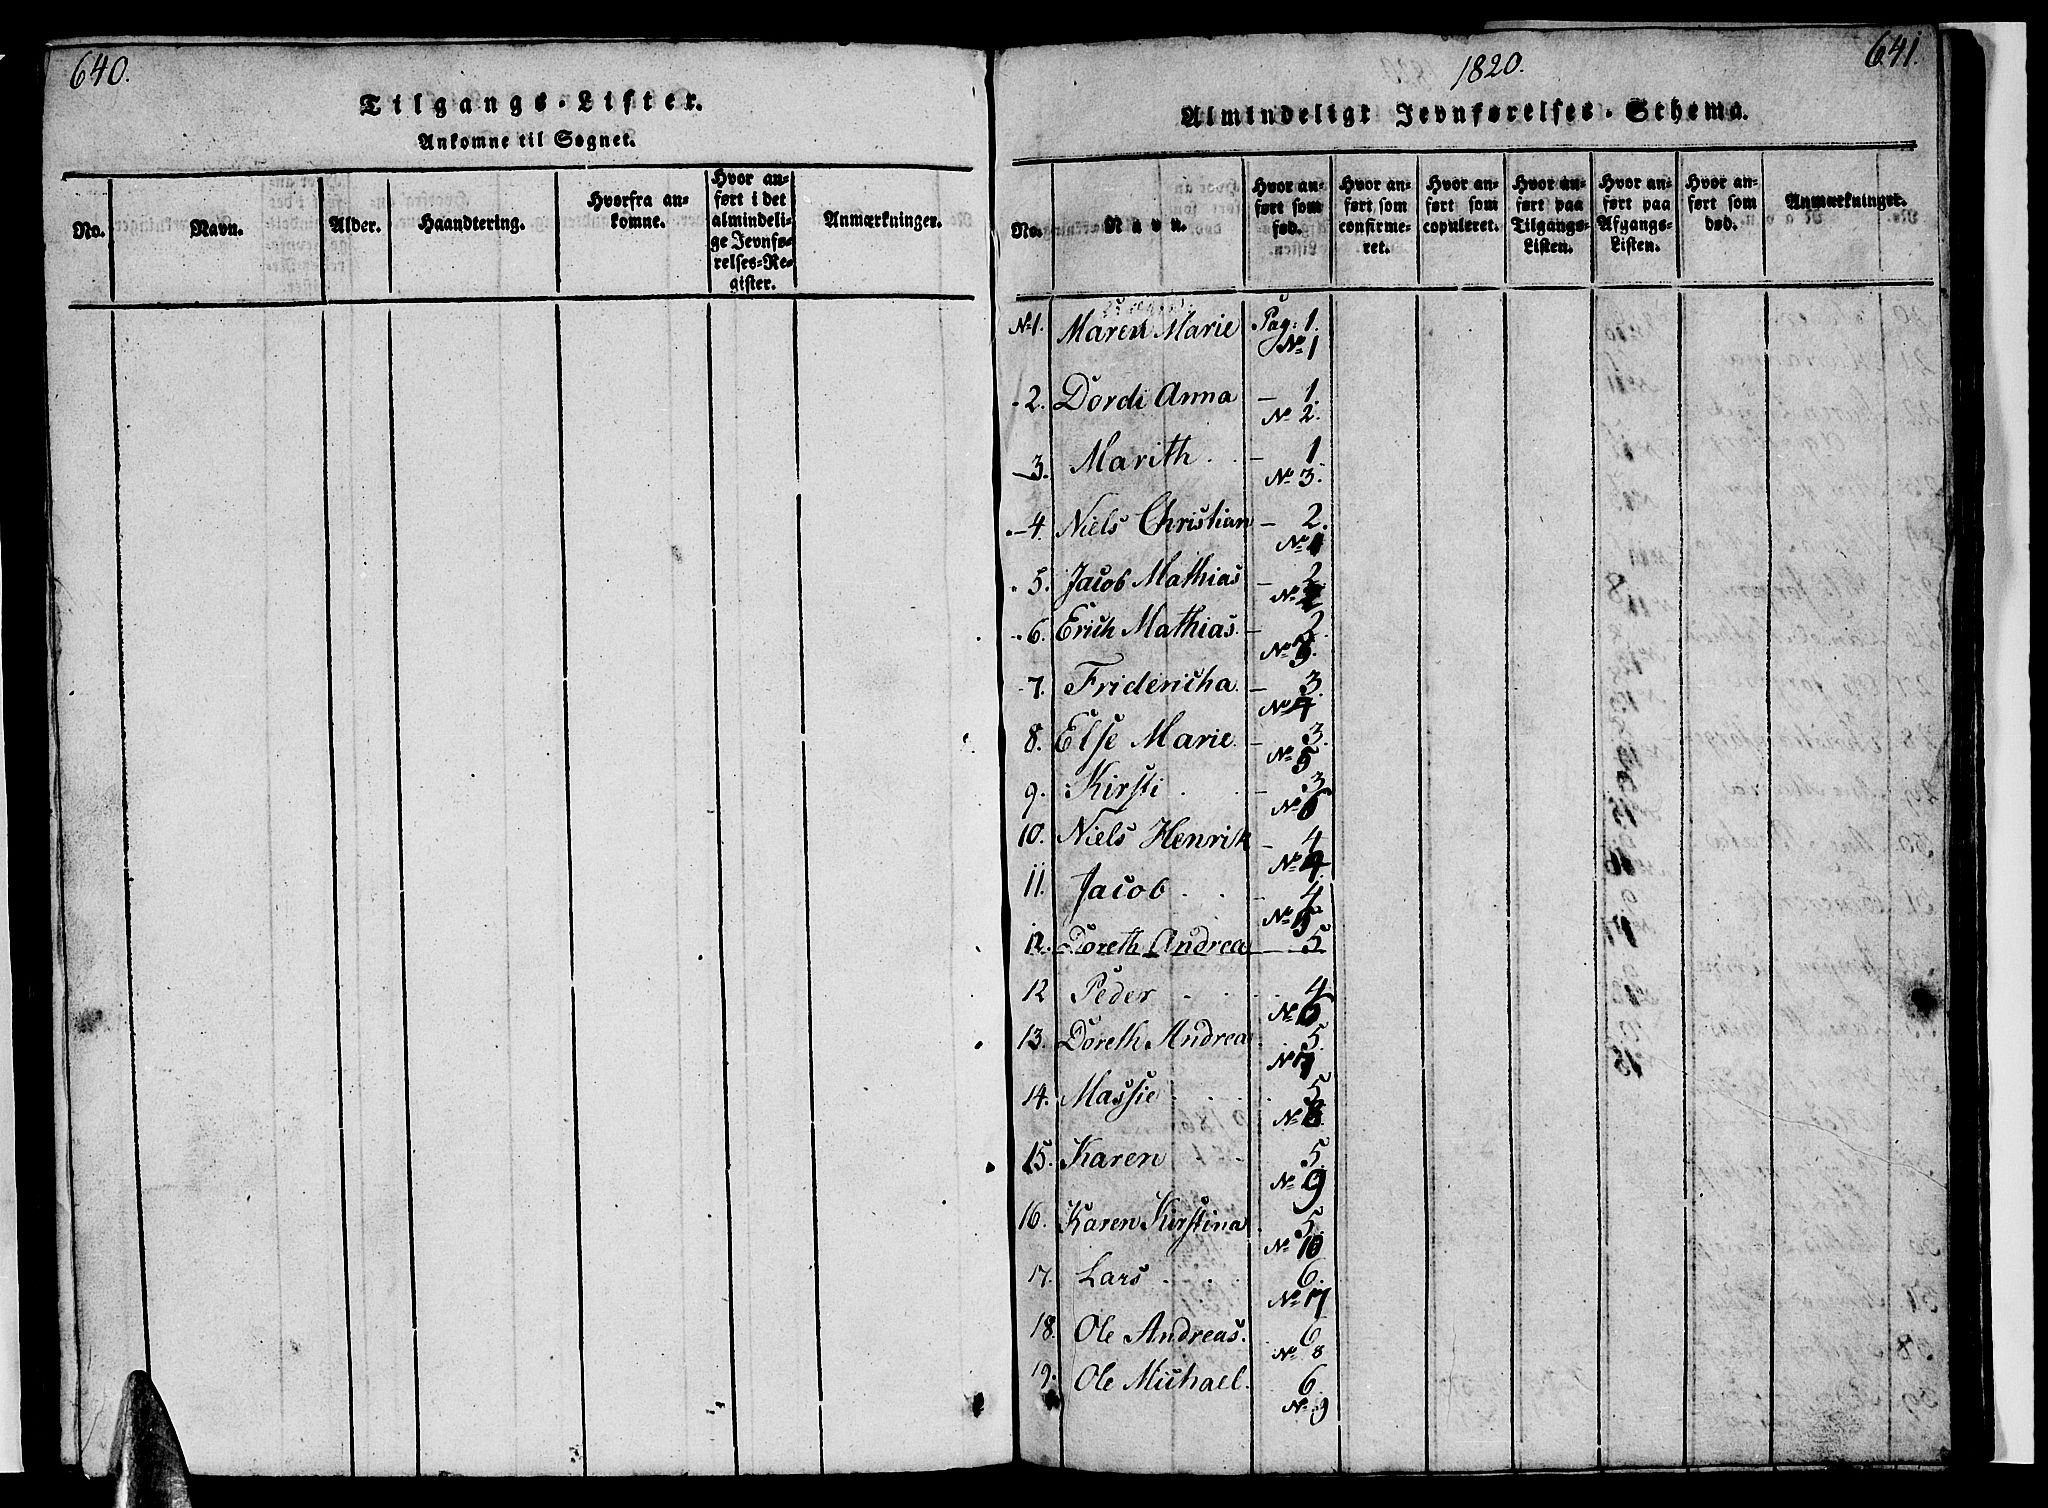 640.
Tilgangs-Lister.
Ankomne til Sognet.
No.
Navn.
Alder.
Haandtering.
Hvorfra an-
komne.
Hvor an-
ført i det
almindeli-
ge Jevnfø-
relses-Re-
gister.
Anmærkninger.
1820.
641.
Almindeligt Jevnførelses-Schema.
No.
Navn.
Hvor an-
ført som
fød.
Hvor an-
ført som
confirme-
ret.
Hvor an-
ført som
copuleret.
Hvor an-
ført paa
Tilgangs-
Listen.
Hvor an-
ført paa
Afgangs-
Listen.
Hvor an-
ført som
død.
Anmærkninger.
No 1. Maren Marie Pag: 1.
No 1
- 2. Dordi Anna - 1.
No 2.
- 3. Marith . . - 1
No 3.
- 4. Niels Christian - 2.
No 1
- 5. Jacob Mathias - 2
No 2
- 6. Erich Mathias. - 2.
No 3.
- 7. Fridericha. - 3.
No 4
8. Else Marie. - 3.
No 5
9. Kirsti . . - 3
No 6
10. Niels Henrik - 4
No 4
11. Jacob . . - 4
No 5
12. Doreth Andrea 5
12 Peder . . . 4
No 6
13. Doreth Andrea . 5.
No 7
14. Massie . . . . 5
No 8
15. Karen - 5.
No 9
16. Karen Kirstina . 5.
No 10
17. Lars . . . 6.
No 7
18. Ole Andreas. . 6
No 8
19. Ole Michael. 6.
No 9